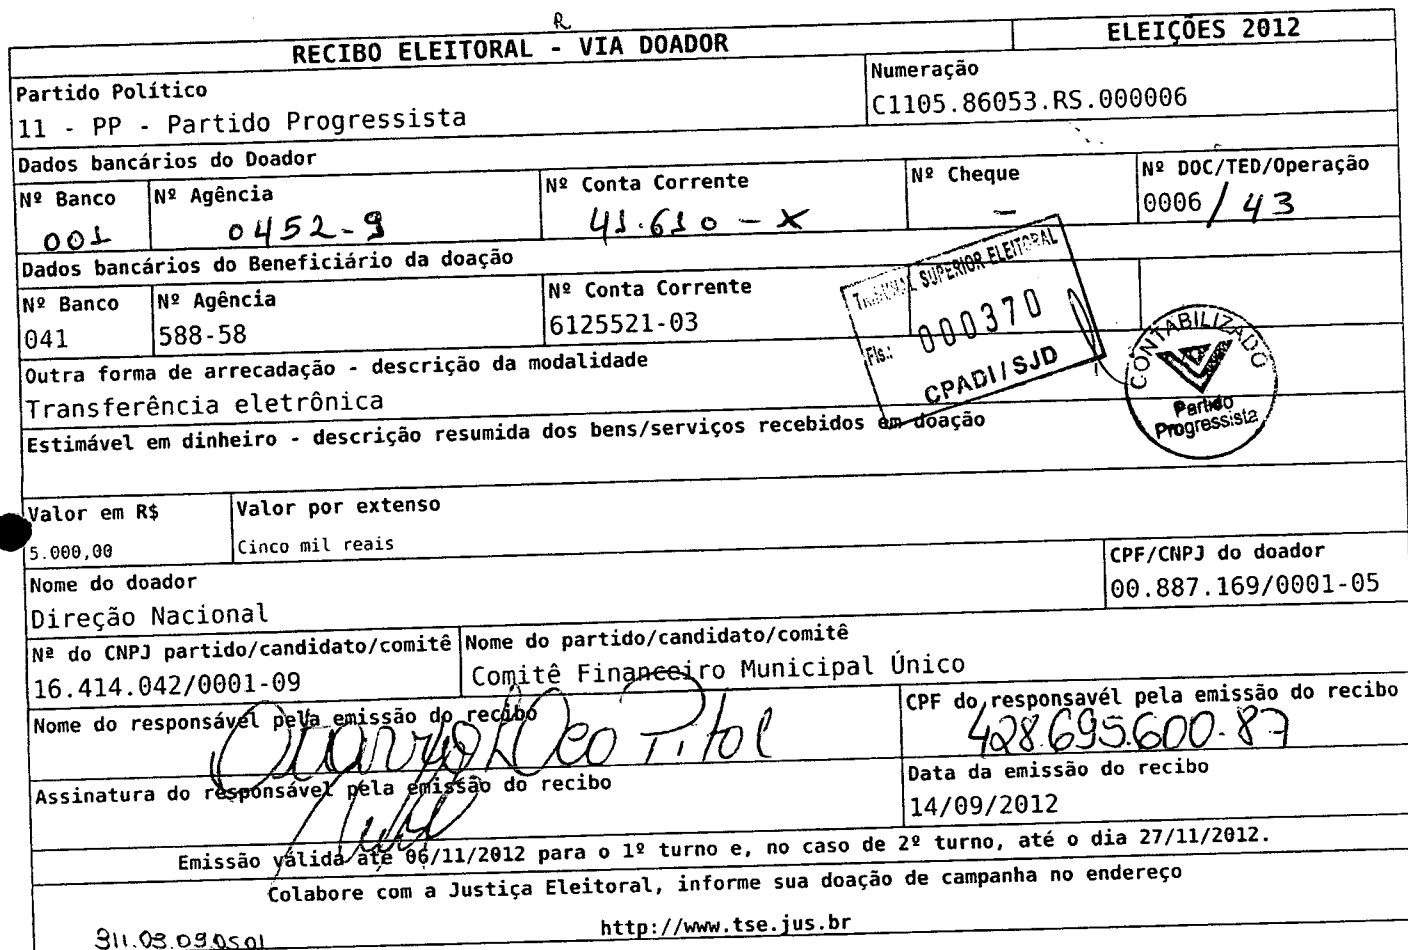 R
RECIBO ELEITORAL - VIA DOADOR
ELEIÇÕES 2012
Partido Político
11 - PP - Partido Progressista
Numeração
C1105.86053.RS.000006
Dados bancários do Doador
Nº Banco
001
Nº Agência
0452-9
Nº Conta Corrente
41.610-X
Nº Cheque
-
Nº DOC/TED/Operação
0006 / 43
Dados bancários do Beneficiário da doação
Nº Banco
041
Nº Agência
588-58
Nº Conta Corrente
6125521-03
TRIBUNAL SUPERIOR ELEITORAL
Fls.: 000370
CPADI / SJD
CONTABILIZADO
Partido
Progressista
Outra forma de arrecadação - descrição da modalidade
Transferência eletrônica
Estimável em dinheiro - descrição resumida dos bens/serviços recebidos em doação
Valor em R$
5.000,00
Valor por extenso
Cinco mil reais
Nome do doador
Direção Nacional
CPF/CNPJ do doador
00.887.169/0001-05
Nª do CNPJ partido/candidato/comitê
16.414.042/0001-09
Nome do partido/candidato/comitê
Comitê Financeiro Municipal Único
Nome do responsável pela emissão do recibo
Pitol
CPF do responsavél pela emissão do recibo
428.695.600-87
Assinatura do responsável pela emissão do recibo
Data da emissão do recibo
14/09/2012
Emissão válida até 06/11/2012 para o 1º turno e, no caso de 2º turno, até o dia 27/11/2012.
Colabore com a Justiça Eleitoral, informe sua doação de campanha no endereço
http://www.tse.jus.br
311.03.03.0501